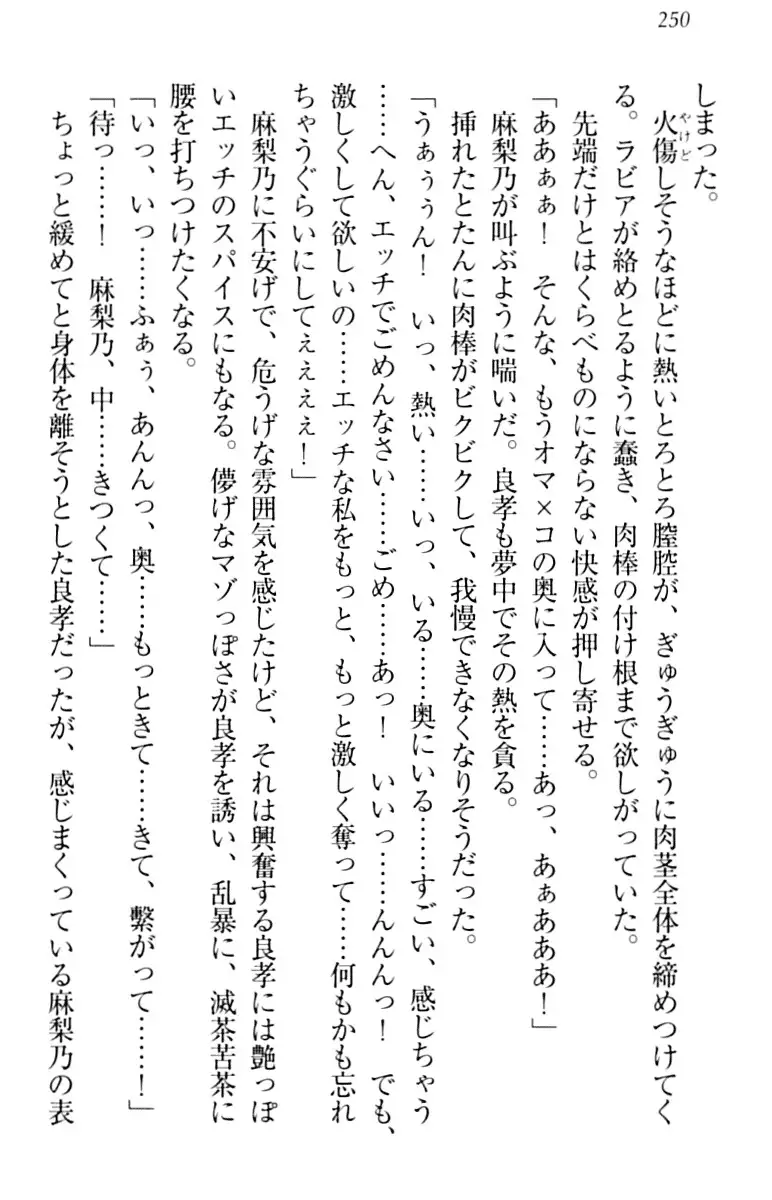 250
しまった。
火傷しそうなほどに熱いとろとろ膣腔が、ぎゅうぎゅうに肉茎全体を締めつけてく
る。ラビアが絡めとるように蠢き、肉棒の付け根まで欲しがっていた。
先端だけとはくらべものにならない快感が押し寄せる。
「ああぁぁ！　そんな、もうオマ×コの奥に入って……あっ、あぁあああ！」
麻梨乃が叫ぶように喘いだ。良孝も夢中でその熱を貪る。
挿れたとたんに肉棒がビクビクして、我慢できなくなりそうだった。
「うぁぅぅん！　いっ、熱い……いっ、いる……奥にいる……すごい、感じちゃう
……へん、エッチでごめんなさい……ごめ……あっ！　いいっ……んんんっ！　でも、
激しくして欲しいの……エッチな私をもっと、もっと激しく奪って……何もかも忘れ
ちゃうぐらいにしてぇぇぇぇ！」
麻梨乃に不安げで、危うげな雰囲気を感じたけど、それは興奮する良孝には艶っぽ
いエッチのスパイスにもなる。儚げなマゾっぽさが良孝を誘い、乱暴に、滅茶苦茶に
腰を打ちつけたくなる。
「いっ、いっ……ふぁぅ、あんんっ、奥……もっときて……きて、繋がって……！」
「待っ……！　麻梨乃、中……きつくて……」
ちょっと緩めてと身体を離そうとした良孝だったが、感じまくっている麻梨乃の表